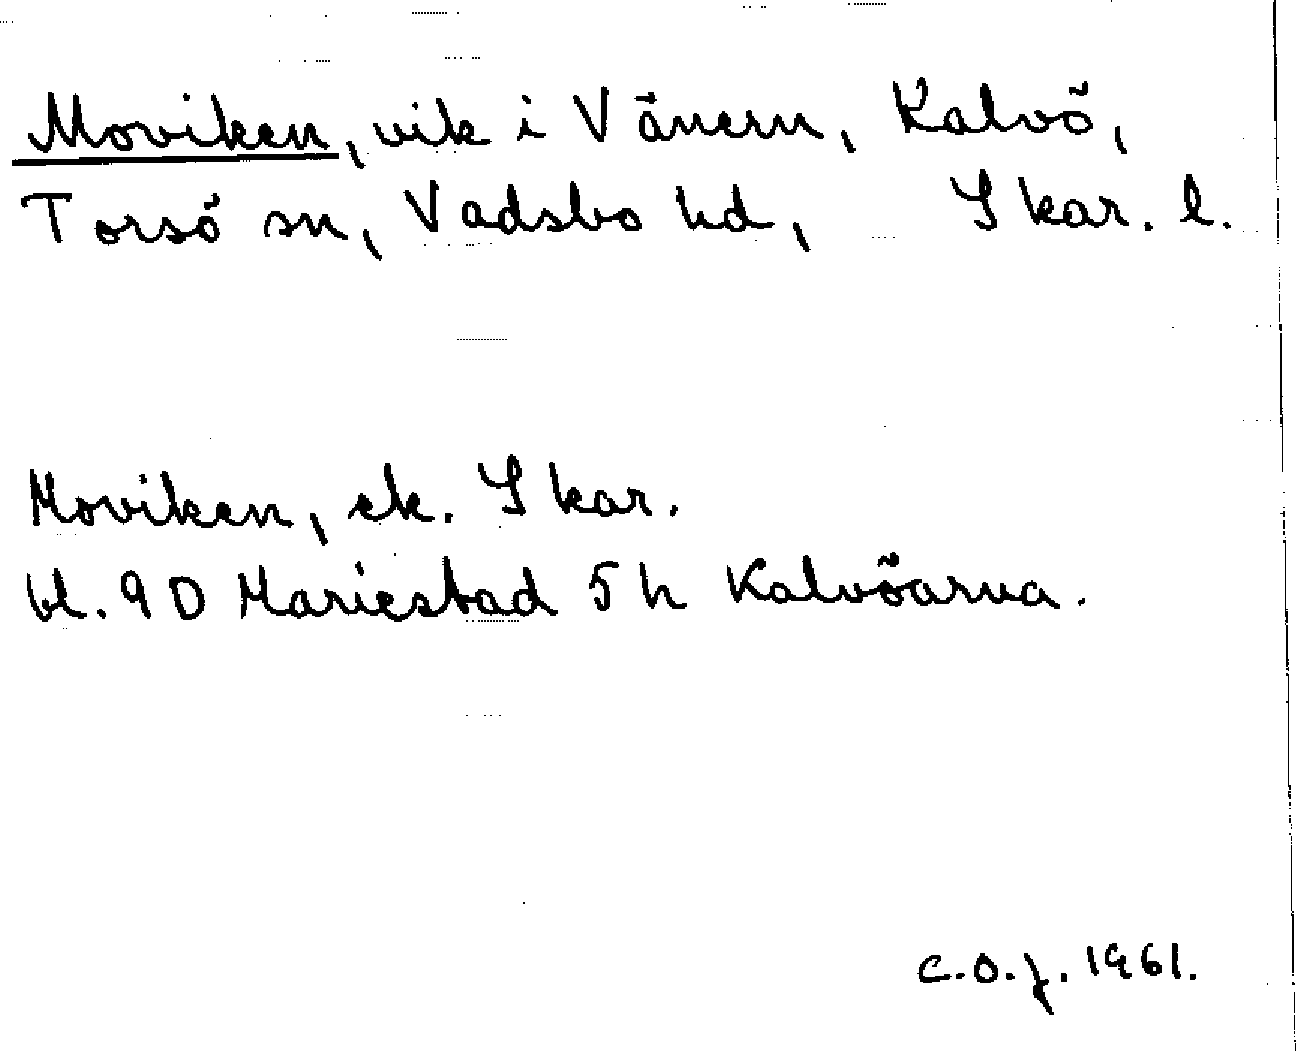 Moviken, vik i Vänern, Kalvö,
Torsö sn, Vadsbo hd, Skar. l.
Moviken, ek. Skar.
bl. 9D Mariestad 5h Kalvöarna.
C.O.J. 1961.